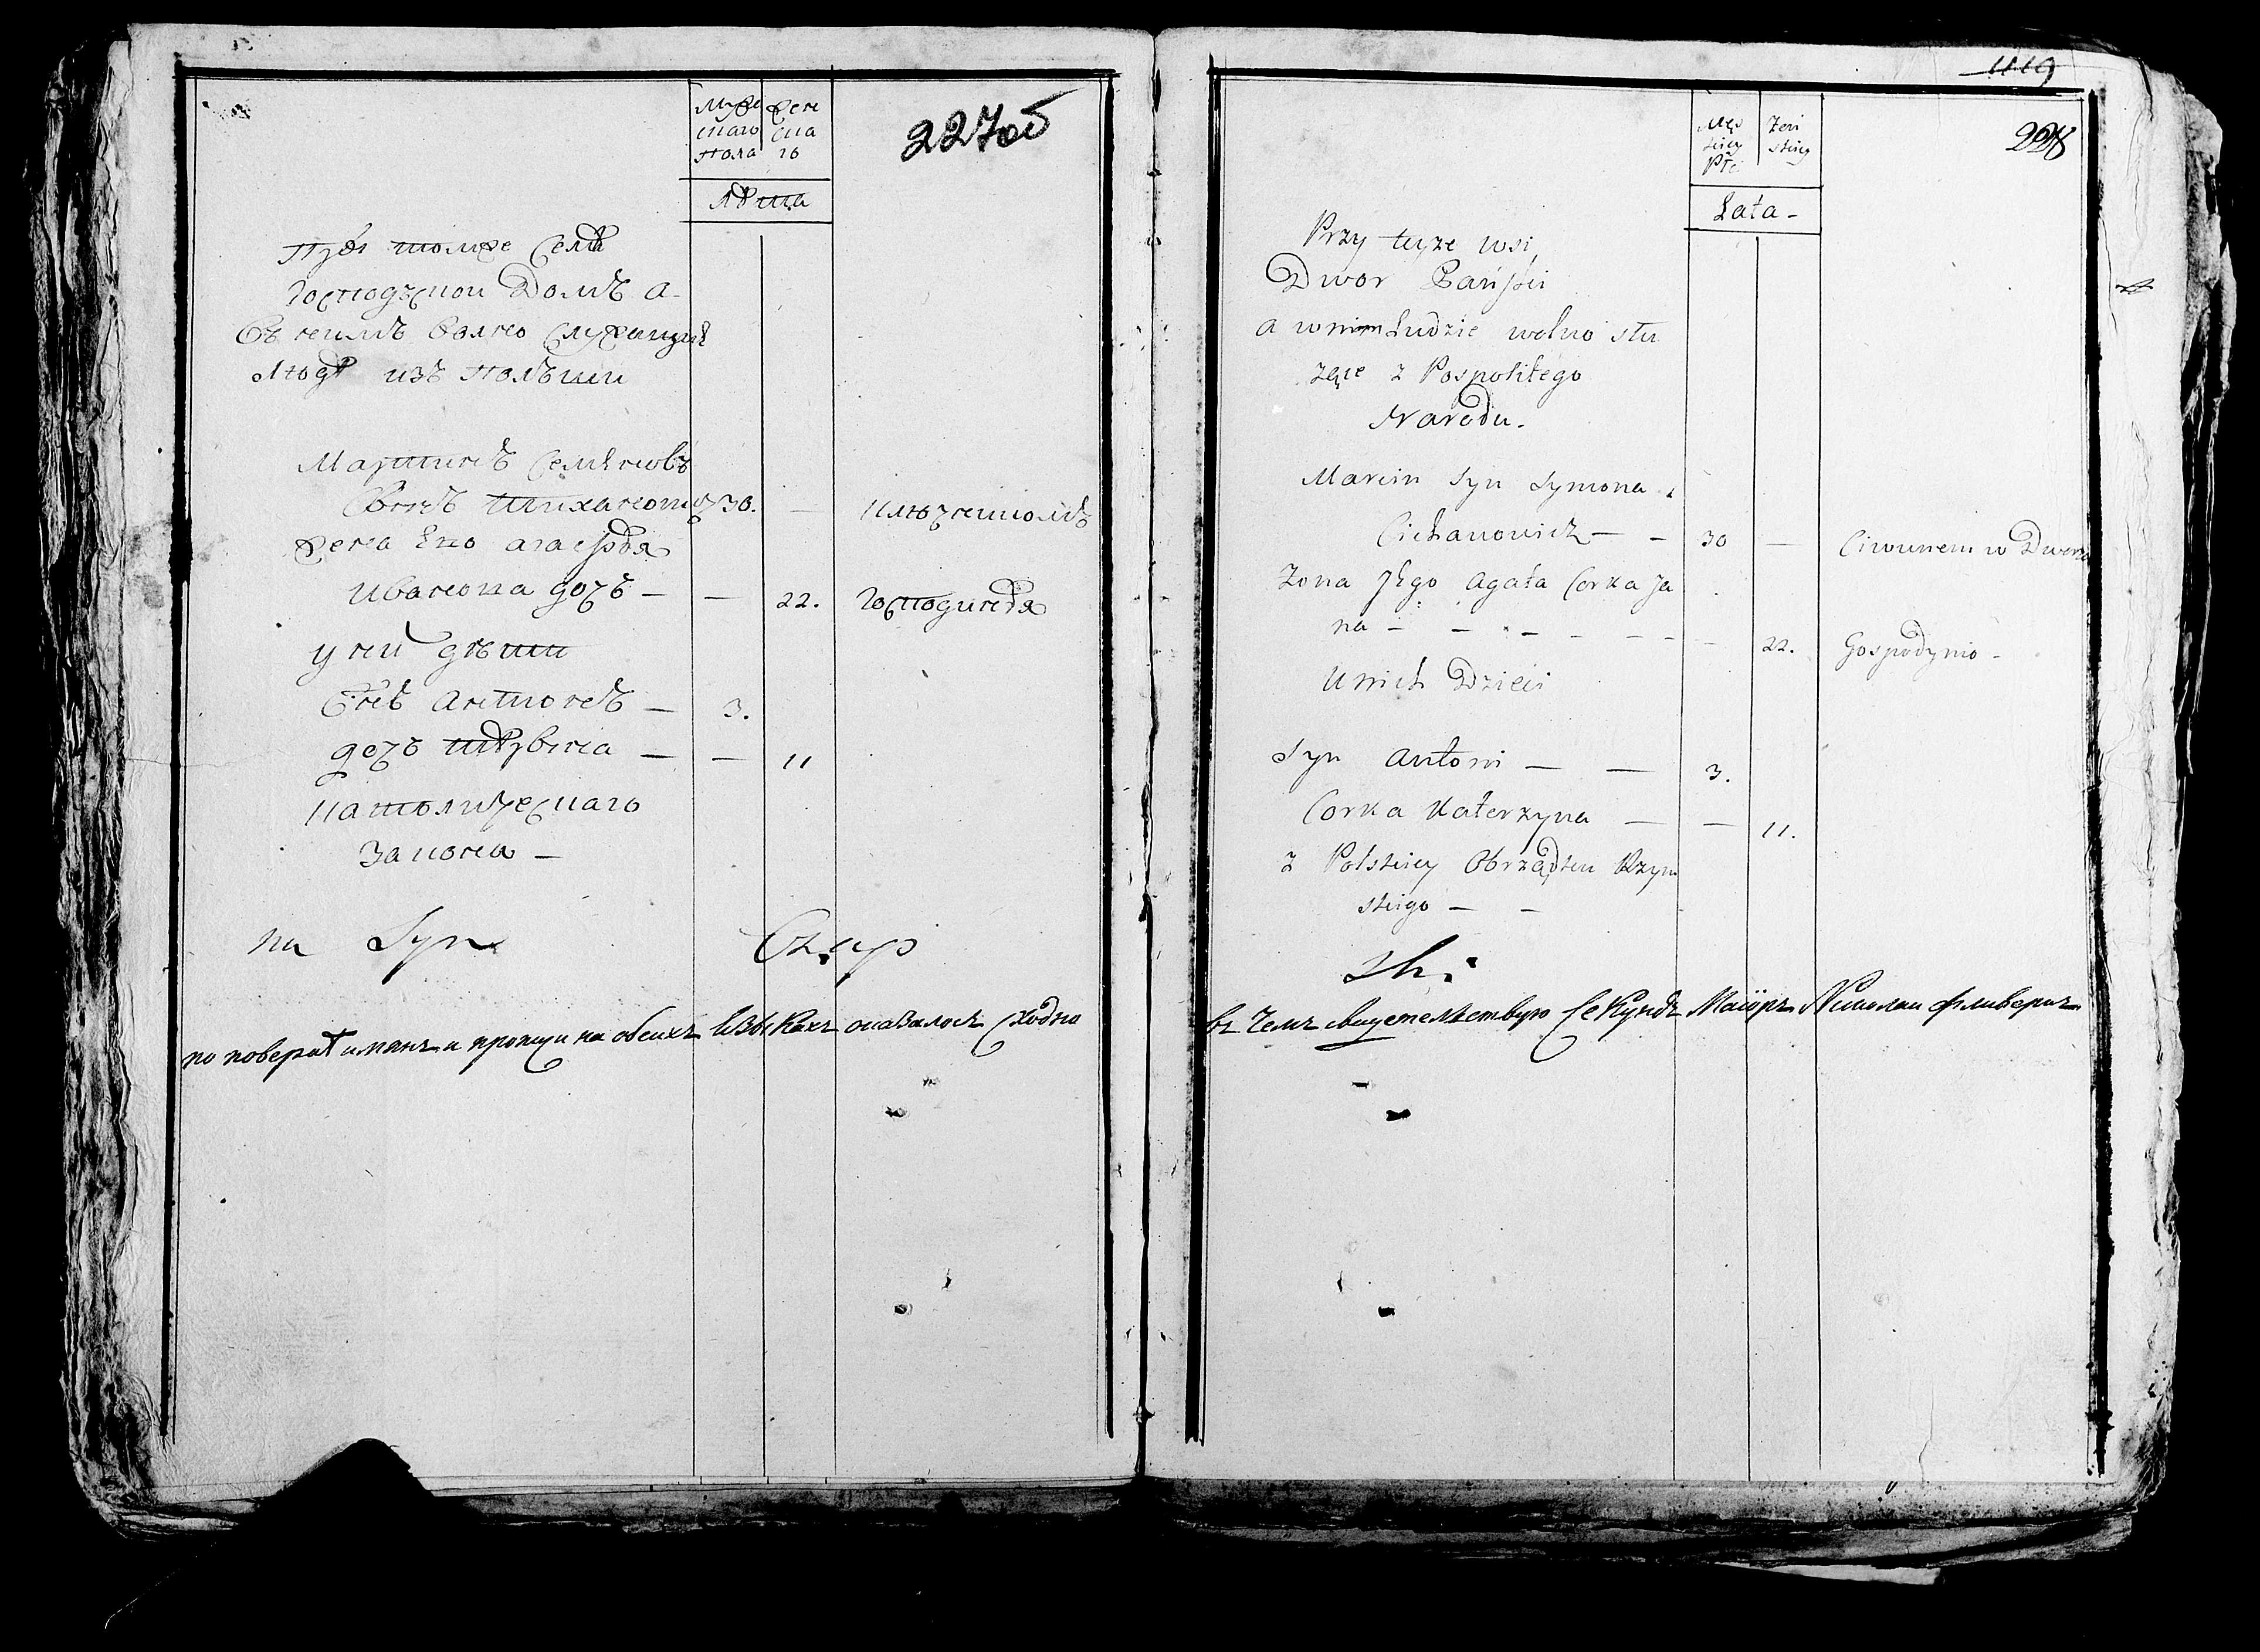 Муже
скаго
пола
Жен
ска
го
Лѣта
227об
При томже селѣ
господской домъ а
въ немъ волно служащия
люди изъ польши
Мартинъ семеновъ
сынъ тиханович 30. —
жена Ево агафья
иванова дочь — — 22. господиня
у них дѣти
Сынъ антонъ — 3.
дочь катерына — — 11
католическаго
закона —
на Syn
по поверке и мянъ и протчи на обеихъ языкахъ оказалось сходно
1119
228
Męs
kiey
Płci
Zeń
skiey
Lata -
Przy teyze wsi
Dwor Pański
a w nim Ludzie wolno słu
zące z Pospolitego
Narodu.
Marcin Syn Symona
Cichanowicz — — 30 — Ciwunem w Dworze
Zona Jego Agata Corka Ja
na — — — — — — — 22. Gospodynio -
U nich Dzieci
Syn Antoni — — 3.
Corka Katerzyna — — 11.
z Polskiey Obrządku Rzym
skigo — —
ski
въ чемъ свидетельствую секундъ маиоръ Николаи